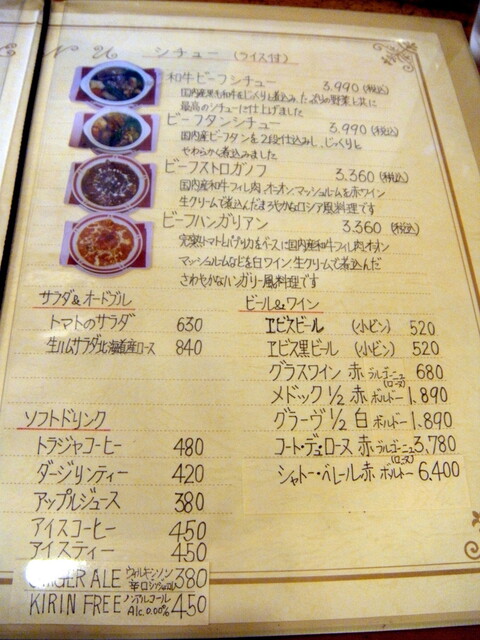 シチュー (ライス付)
和牛ビーフシチュー 3.990 (税込)
国内産黒毛和牛をじっくり煮込み、たっぷりの野菜と共に
最高のシチューに仕上げました
ビーフタンシチュー 3.990 (税込)
国内産ビーフタンを2段仕込みし、じっくりと
やわらかく煮込みました
ビーフストロガノフ 3.360 (税込)
国内産和牛フィレ肉、オニオン、マッシュルームを赤ワイン
生クリームで煮込んだまろやかなロシア風料理です
ビーフハンガリアン 3.360 (税込)
完熟トマト、パプリカをベースに国内産和牛フィレ肉、オニオン
マッシュルームなどを白ワイン、生クリームで煮込んだ
さわやかなハンガリー風料理です
サラダ&オードブル
トマトのサラダ 630
生ハムサラダ北海道産ロース 840
ソフトドリンク
トラジャコーヒー 480
ダージリンティー 420
アップルジュース 380
アイスコーヒー 450
アイスティー 450
GINGER ALE ウィルキンソン 380
KIRIN FREE ノンアルコール Alc.0.00% 450
ビール&ワイン
ヱビスビール (小ビン) 520
ヱビス黒ビール (小ビン) 520
グラスワイン 赤 (ローヌ) 680
メドック 1/2 赤 ボルドー 1,890
グラーヴ 1/2 白 ボルドー 1,890
コート・デュ・ローヌ 赤 (ローヌ) 3,780
シャトー・ベレール 赤 ボルドー 6,400